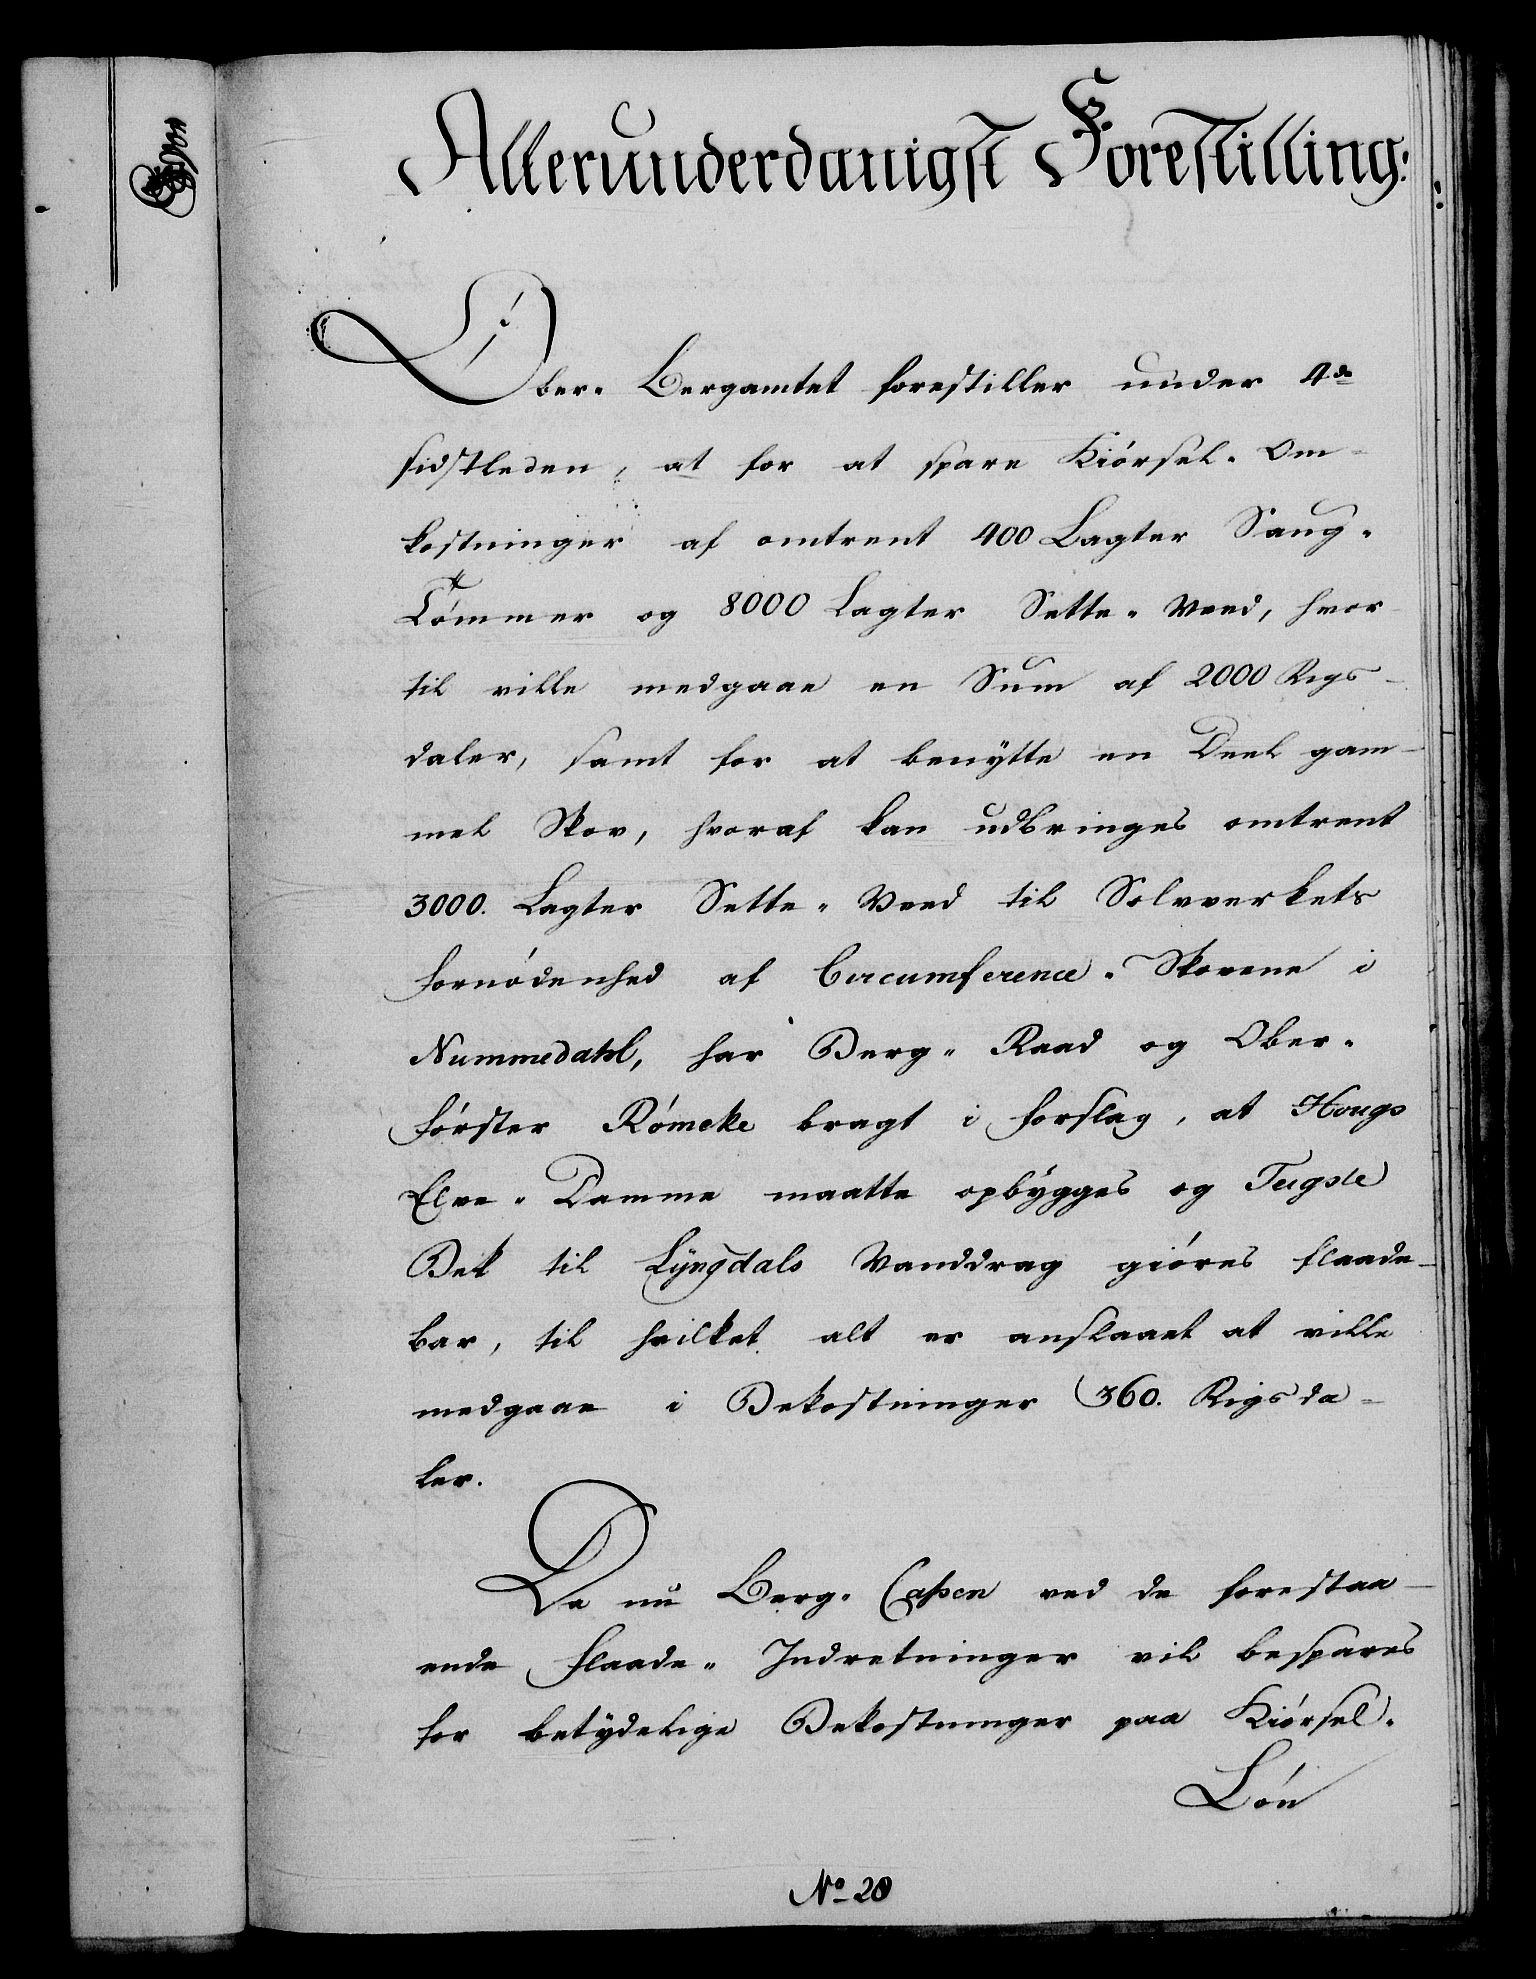 Allerunderdanigst Forestilling:
Ober- Bergamtet forestiller under 4de
sidstleden, at for at spare Kiörsel- Om-
kostninger af omtrent 400 Lagter Saug-
Tömmer og 8000 Lagter Sette- Veed, hvor-
til ville medgaae en Sum af 2000 Rigs-
daler, samt for at benÿtte en Deel gam-
mel Skov, hvoraf kan udbringes omtrent
3000. Lagter Sette- Veed til Sølvverkets
Fornödenhed af Circumference- Skovene i
Nummedahl, har Berg- Raad og Ober-
förster Römcke bragt i Forslag, at Hougs
Elve- Damme maatte opbÿgges og Tugsle
Bek til Lÿngdals Vanddrag giöres flaade-
bar, til hvilket alt er anslaaet at ville
medgaae i Bekostninger 360. Rigsda-
ler.
Da nu Berg- Caßen ved de forestaa-
ende Flaade- Indretninger vil bespares
for betÿdelige Bekostninger paa Kiörsel-
Lön
No 28